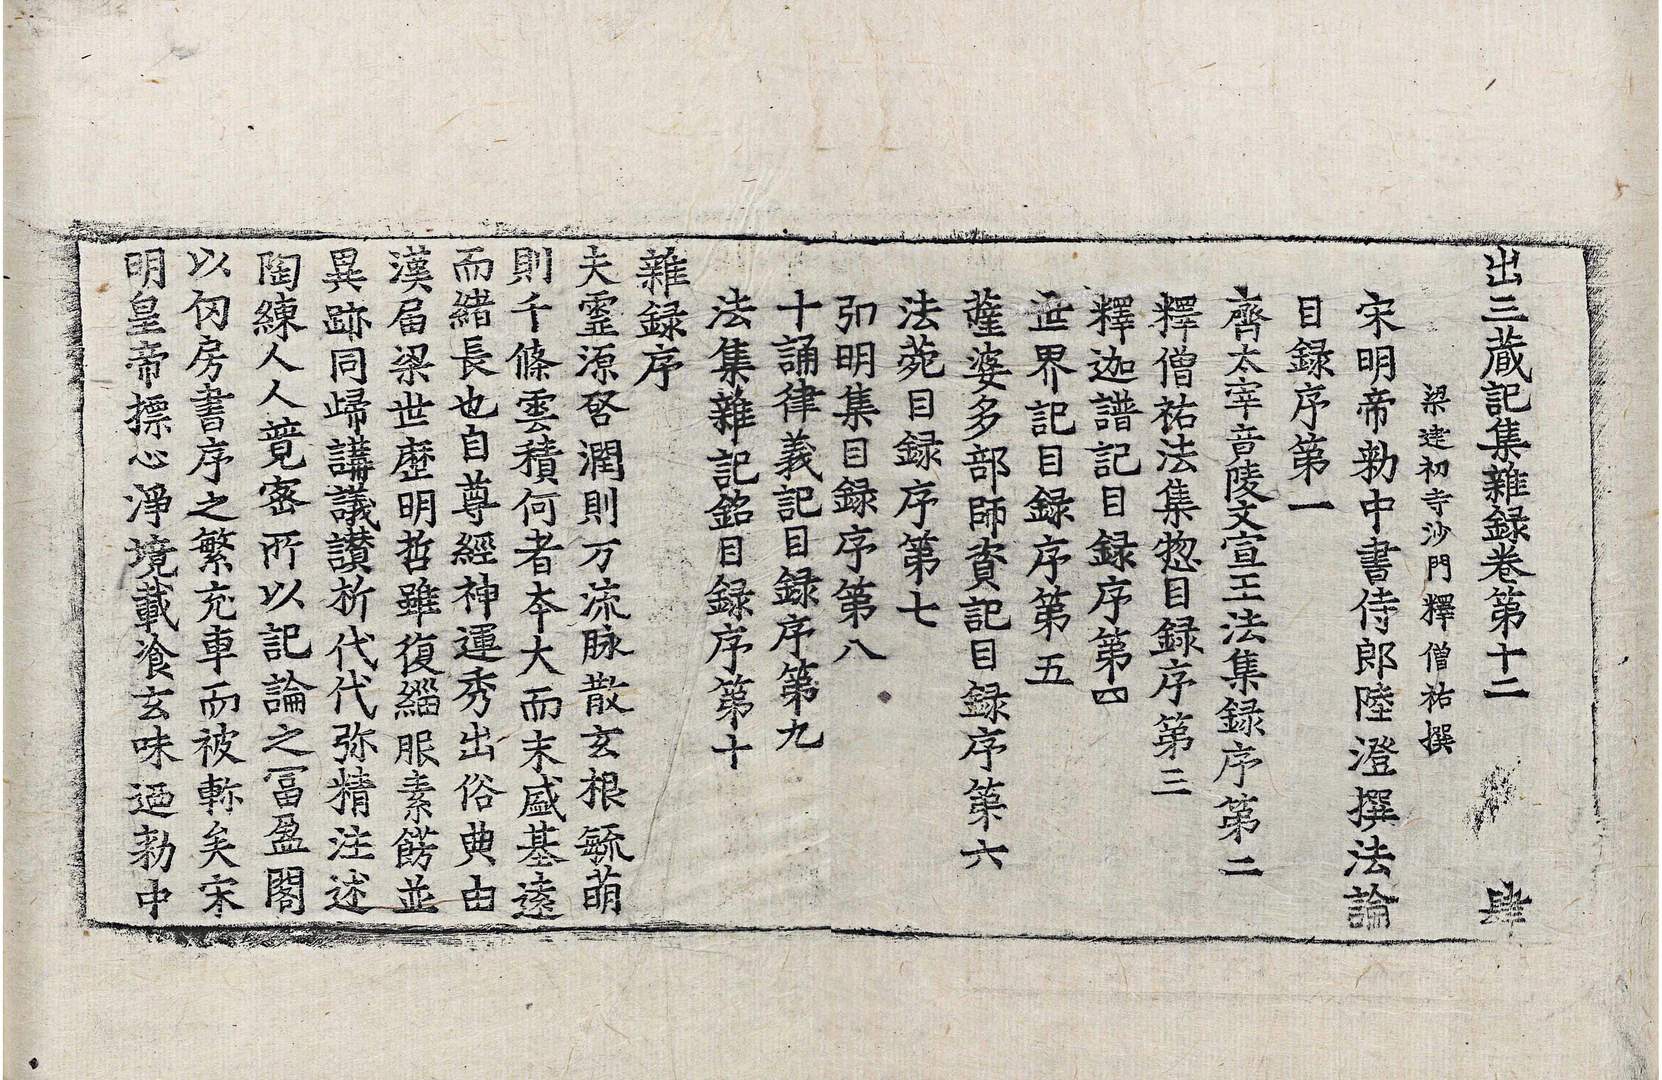 出三蔵記集雜録卷第十二　肆
梁建初寺沙門釋僧祐撰
宋明帝勑中書侍郎陸澄撰法論
目録序第一
齊太宰竟陵文宣王法集録序第二
釋僧祐法集惣目録序第三
釋迦譜記目録序第四
世界記目録序第五
薩婆多部師資記目録序第六
法菀目録序第七
弘明集目録序第八
十誦律義記目録序第九
法集雜記銘目録序第十
雜録序
夫靈源啓潤則万流脉散玄根毓萌
則千條雲積何者夲大而末盛基遠
而緒長也自尊經神運秀出俗典由
漢届梁世歷明哲雖復緇服素餝並
異跡同歸講議讃析代代弥精注述
陶練人人競密所以記論之富盈閣
以仞房書序之繁充車而被軫矣宋
明皇帝摽心淨境載飡玄味迺勑中